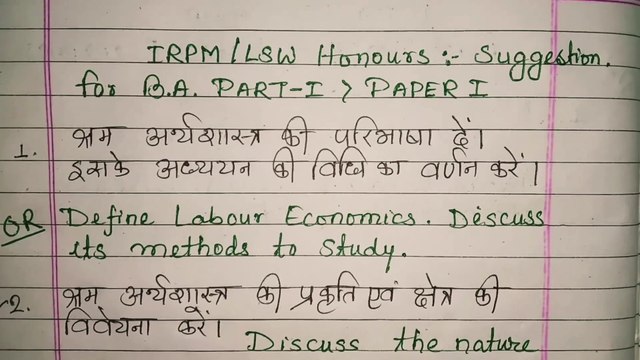 IRPM/LSW Honours :- Suggestion.
for B.A. PART-I > PAPER I
1. श्रम अर्थशास्त्र की परिभाषा दें।
इसके अध्ययन की विधि का वर्णन करें।
OR Define Labour Economics. Discuss
its methods to Study.
2. श्रम अर्थशास्त्र की प्रकृति एवं क्षेत्र की
विवेचना करें।
Discuss the nature